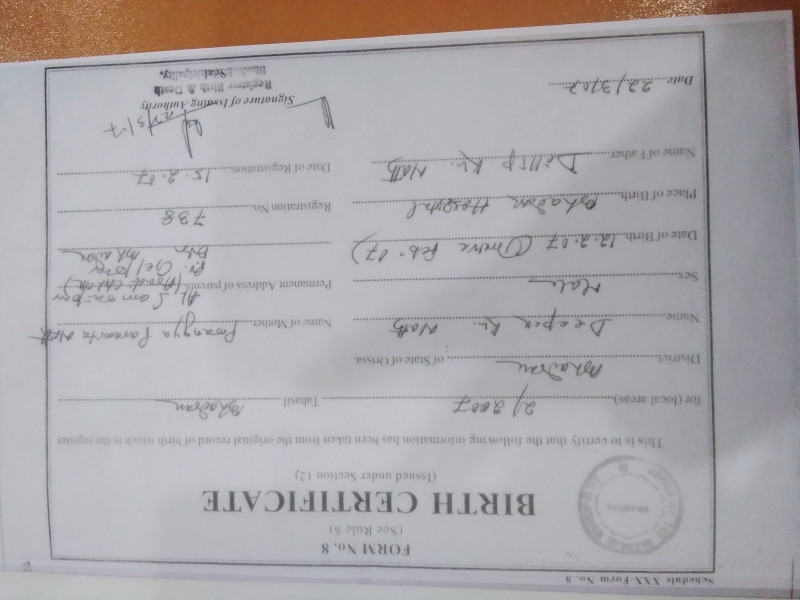 Schedule XXX-Form No. 8
FORM No. 8
(See Rule 8)
BIRTH CERTIFICATE
(Issued under Section 12)
This is to certify that the following information has been taken from the original record of birth which is the register
for (local areas) 2/2007 Tahasil Bhadrak
District Bhadrak of State of Orissa.
Name Deepak Kr. Name of Mother
Sex Male Permanent Address of parents
Date of Birth 12.2.07 (Twelve Feb. 07)
Place of Birth Bhadrak Hospital Registration No. 738
Name of Father Dillip Kr. Date of Registration 15.2.07
Signature of Issuing Authority
Date 22/3/07 Registrar Birth & Death